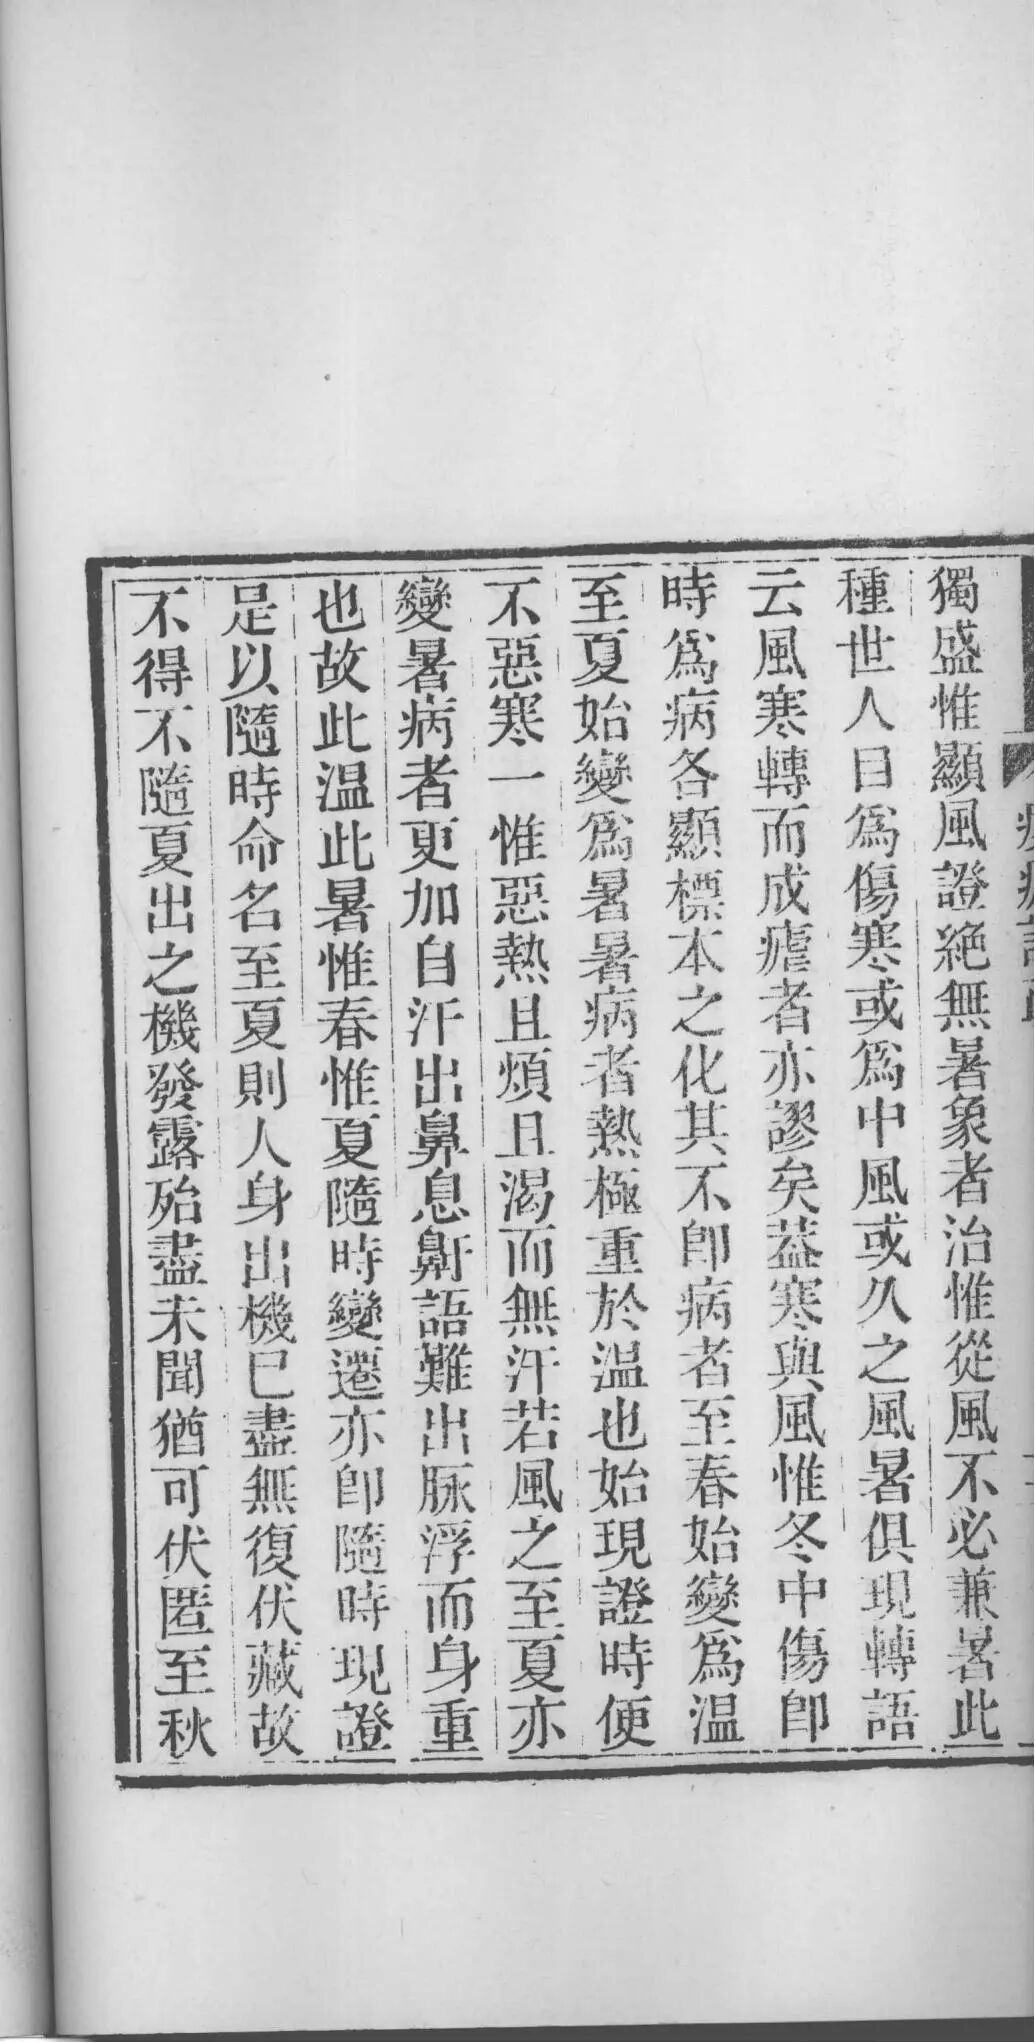 獨盛惟顯風證絕無暑象者治惟從風不必兼暑此
種世人目爲傷寒或爲中風或久之風暑俱現轉語
云風寒轉而成瘧者亦謬矣葢寒與風惟冬中傷卽
時爲病各顯標本之化其不卽病者至春始變爲温
至夏始變爲暑暑病者熱極重於温也始現證時便
不惡寒一惟惡熱且煩且渴而無汗若風之至夏亦
變暑病者更加自汗出鼻息鼾語難出脉浮而身重
也故此温此暑惟春惟夏隨時變遷亦卽隨時現證
是以隨時命名至夏則人身出機已盡無復伏藏故
不得不隨夏出之機發露殆盡未聞猶可伏匿至秋